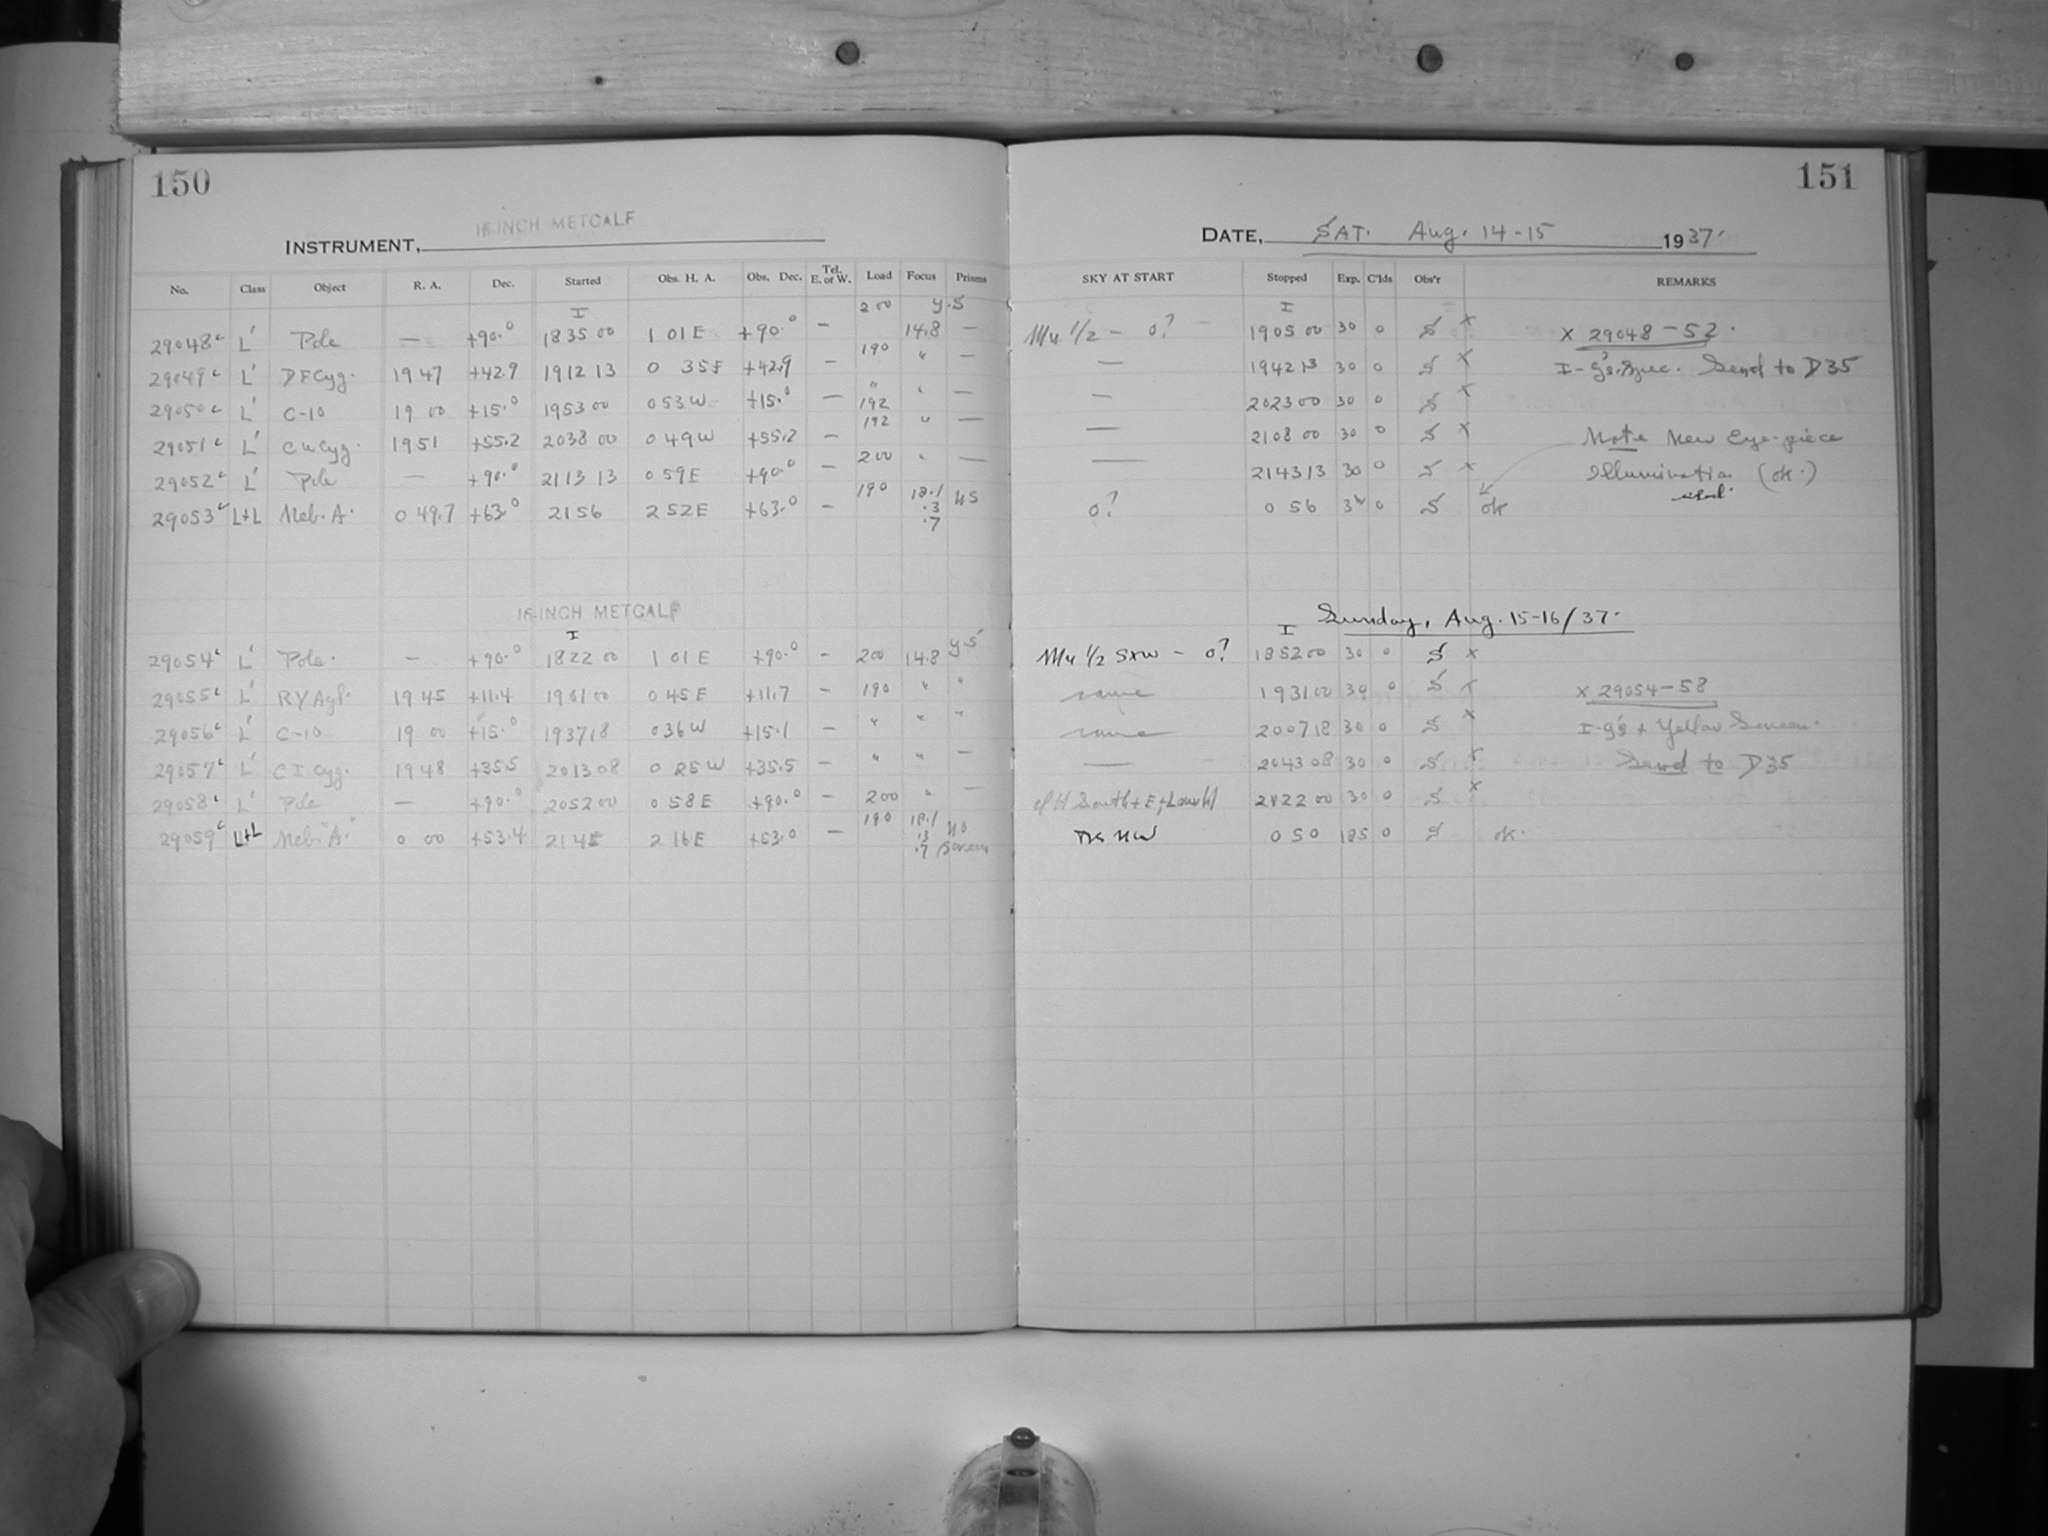 150
16-INCH METCALF
INSTRUMENT,
No. Class Object R. A. Dec. Started Obs. H. A. Obs. Dec. Tel. E. or W. Load Focus Prisms
I 200 Y.S
29048c L' Pole — +90.° 18 35 00 1 01 E +90.° — 14.8 —
29049c L' DF Cyg. 19 47 +42.9 19 12 13 0 35 E +42.9 — 190 " —
29050c L' C-10 19 00 +15.° 19 53 00 0 53 W +15.° — " 192 " —
29051c L' CW Cyg. 19 51 +55.2 20 38 00 0 49 W +55.2 — 192 " —
29052c L' Pole — +90.° 21 13 13 0 59 E +90.° — 200 " —
29053c L+L Neb. A. 0 49.7 +63.° 21 56 2 52 E +63.° — 190 18.1 NS
.3
.7
16-INCH METCALF
I
29054c L' Pole. — +90.° 18 22 00 1 01 E +90.° — 200 14.8 Y.S
29055c L' RY Aql. 19 45 +11.4 19 01 00 0 45 E +11.7 — 190 " "
29056c L' C-10 19 00 +15.° 19 37 18 0 36 W +15.1 — " " "
29057c L' CI Cyg. 19 48 +35.5 20 13 08 0 25 W +35.5 — " " —
29058c L' Pole — +90.° 20 52 00 0 58 E +90.° — 200 " —
29059c L+L Neb. "A." 0 00 +53.4 21 45 2 16 E +53.0 — 190 18.1 No
.3
.7 Screen
151
DATE, SAT. Aug. 14-15 1937.
SKY AT START Stopped Exp. C'lds Obs'r REMARKS
I
1/2 — 0? 19 05 00 30 0 S x x 29048-52.
— 19 42 13 30 0 S x I-g's. Spec. Send to D35
— 20 23 00 30 0 S x
— 21 08 00 30 0 S x Note New Eye-piece
— 21 43 13 30 0 S x Illumination (ok.)
0? 0 56 0 S ok
Sunday, Aug. 15-16/37.
I
1/2 S+W — 0? 18 52 00 30 0 S x
same 19 31 00 30 0 S x x 29054-58
same 20 07 18 30 0 S x I-g's + Yellow Screen.
— 20 43 08 30 0 S x Send to D35
South + E 21 22 00 30 0 S x
NW 0 50 185 0 S ok.